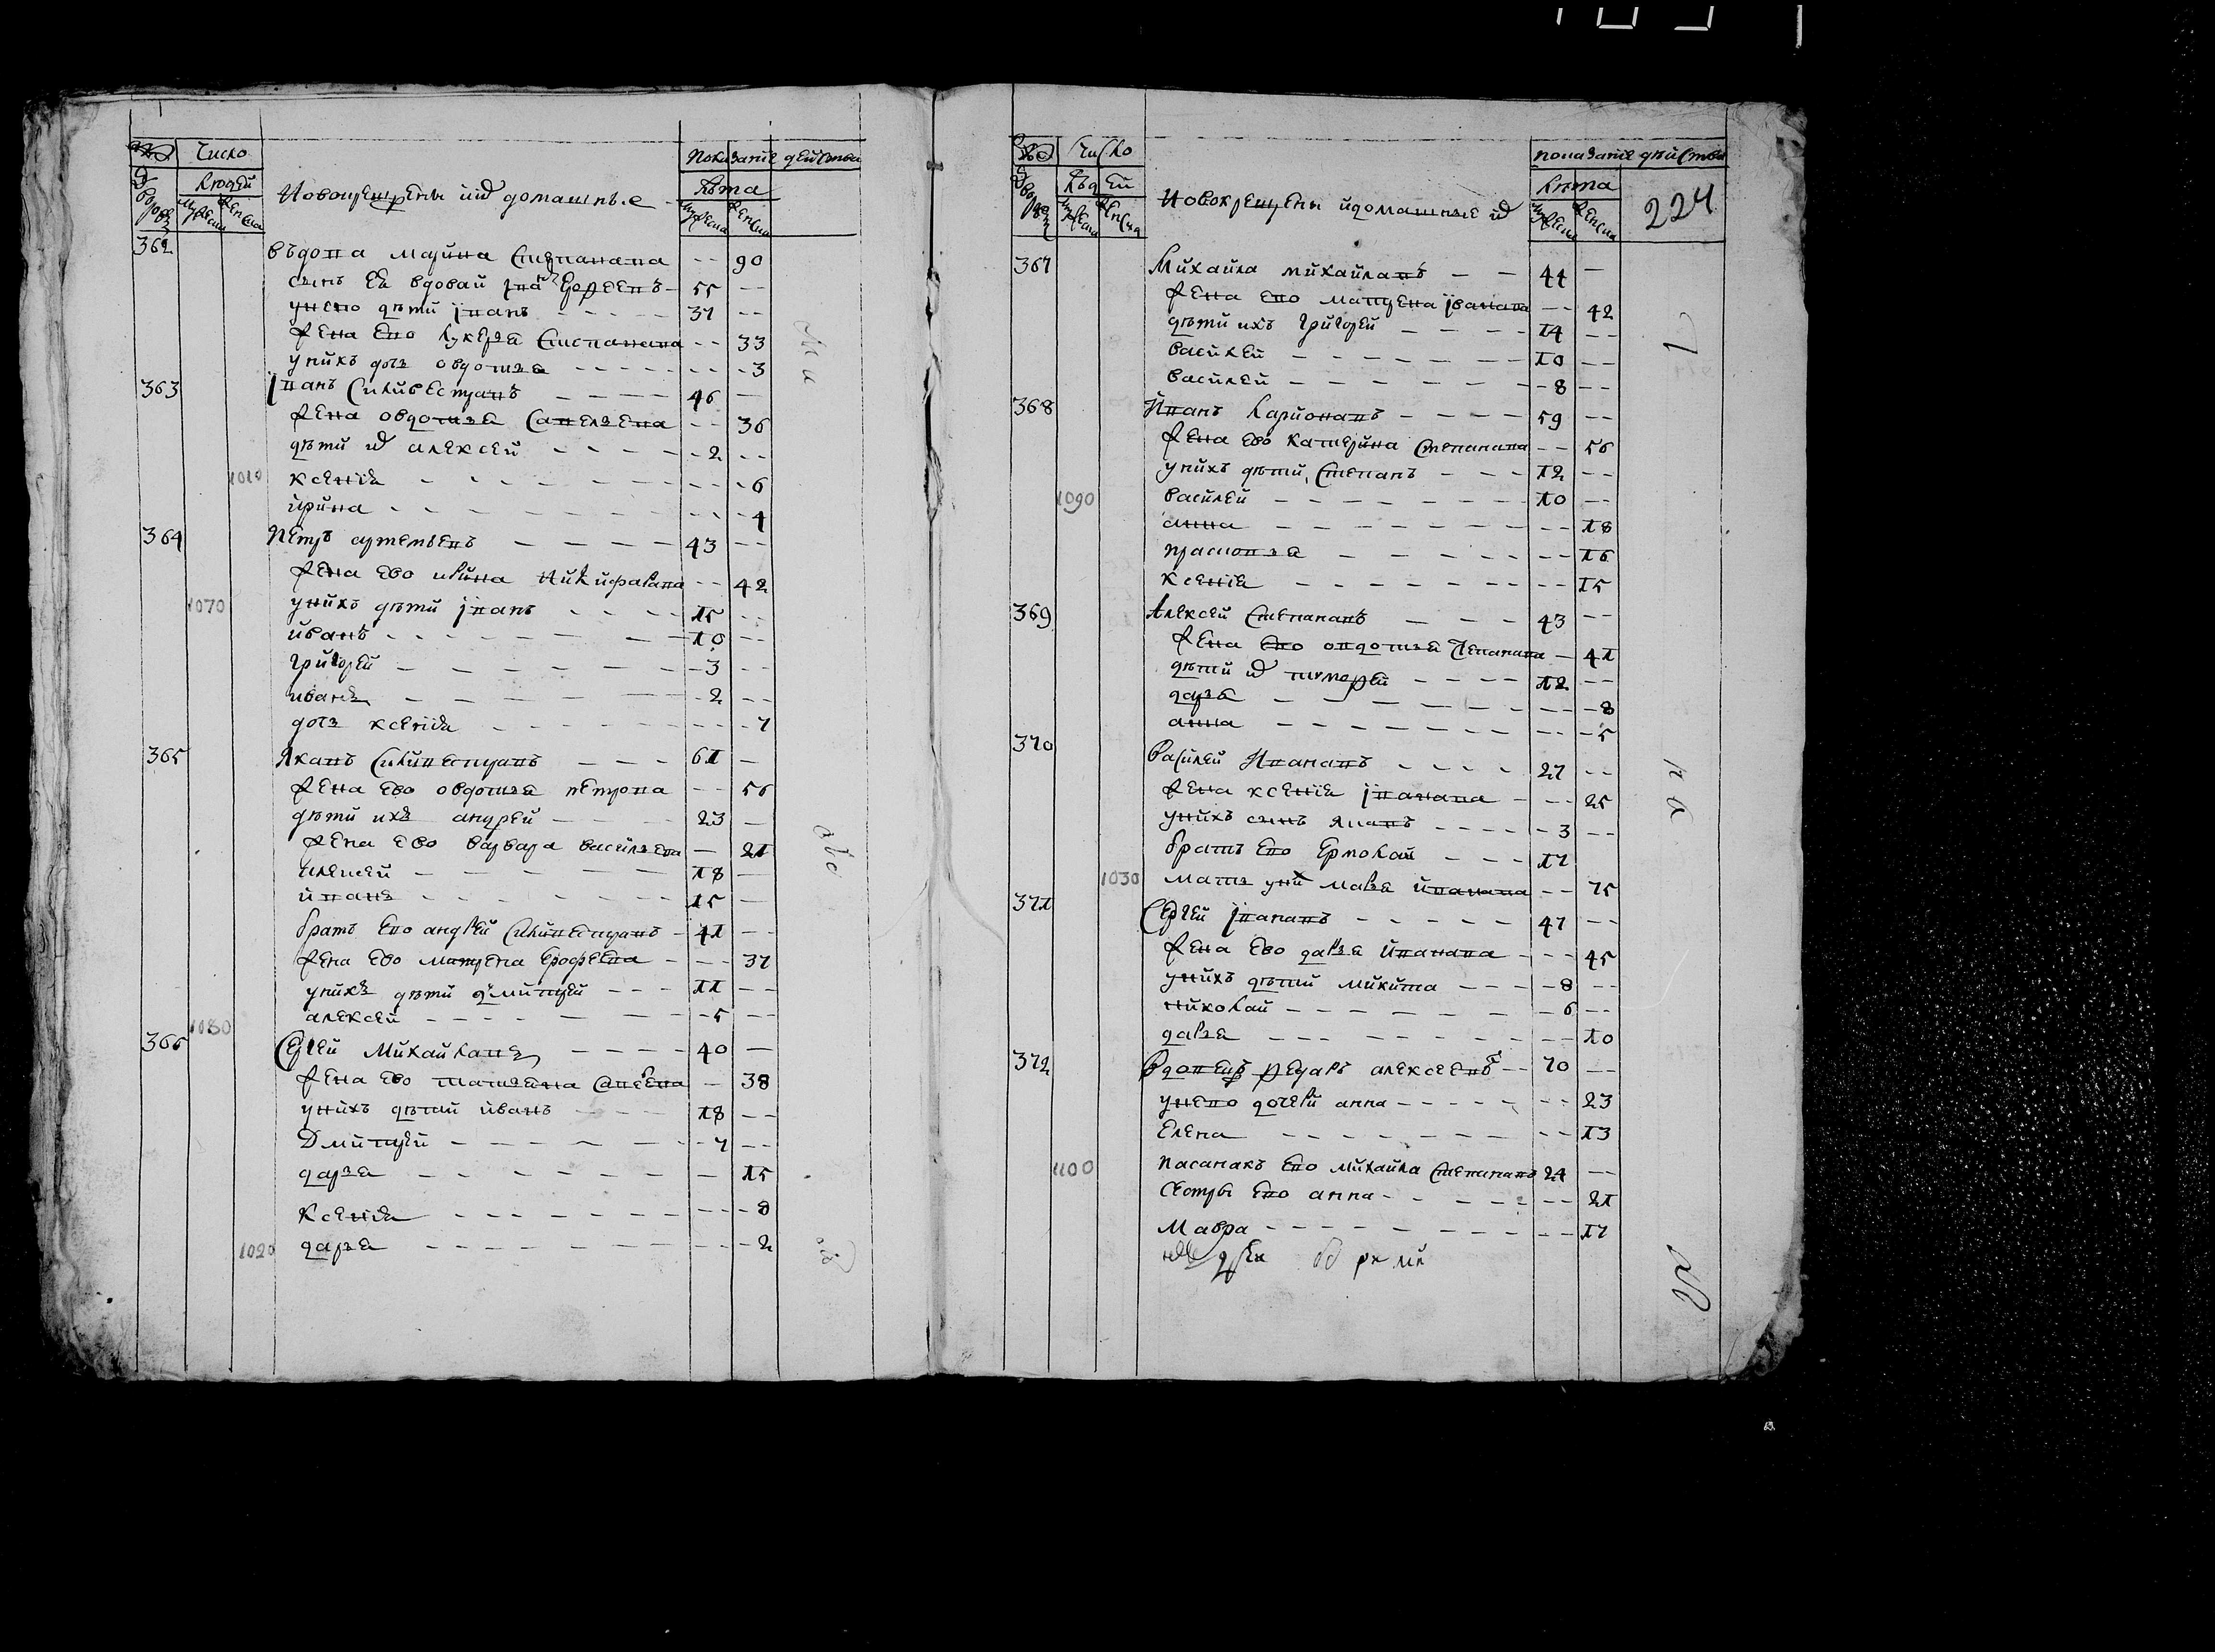 Число
Показание действа
людей
лѣта
дворовъ мужеска женска
Новокрещены и их домашные
мужеска женска
362 въдова марина степанава -- 90
сынъ еѣ вдовай иванъ ерофеевъ 55 --
у него дѣти иванъ 37 --
жена ево лукеря степанава -- 33
у нихъ доч овдотья -- 3
363 иванъ силивестравъ 46 --
жена овдотья савельева -- 36
дѣти их алексей 2 --
1010 ксения -- 6
ирина -- 4
364 петръ артемьевъ 43 --
жена ево ирина никифарава -- 42
1070 у нихъ дѣти иванъ 15 --
иванъ 10 --
григорей 3 --
иванъ 2 --
доч ксения -- 7
365 яковъ силивестравъ 61 --
жена ево овдотья петрова -- 56
дѣти ихъ андрей 23 --
жена ево варвара васильева -- 21
алексей 18 --
иванъ 15 --
братъ ево андрей силивестравъ 41 --
жена ево матрена ерофеева -- 37
у нихъ дѣти дмитрей 11 --
алексей 5 --
1080
366 сергей михайлавъ 40 --
жена ево татьяна савельева -- 38
у нихъ дѣти иванъ 18 --
дмитрей 7 --
дарья -- 15
ксения -- 8
1020 дарья -- 2
Число
показание дѣйства
людей
лѣта
224
дворовъ мужеска женска
новокрещены и домашные их
мужеска женска
367 михайла михайлавъ 44 --
жена ево матрена иванава -- 42
дѣти ихъ григорей 14 --
василей 10 --
василей 8 --
368 иванъ ларионавъ 59 --
жена ево катерина степанава -- 56
у нихъ дѣти степанъ 12 --
1090 василей 10 --
анна -- 18
прасковья -- 16
ксения -- 15
369 алексей степанавъ 43 --
жена ево овдотья степанава -- 41
дѣти их тимофей 12 --
дарья -- 8
анна -- 5
370 василей иванавъ 27 --
жена ксения иванава -- 25
у нихъ сынъ яканъ 3 --
братъ ево ермолай 17
1030 мать у них марья иванава -- 75
371 сергей иванавъ 47 --
жена ево дарья иванава -- 45
у нихъ дѣти микита 8 --
николай 6 --
дарья -- 10
372 вдовецъ федаръ алексеевъ 70 --
у нево дочери анна -- 23
елена -- 13
1100 пасанакъ ево михайла степанавъ 24 --
сестры ево анна -- 21
мавра -- 17